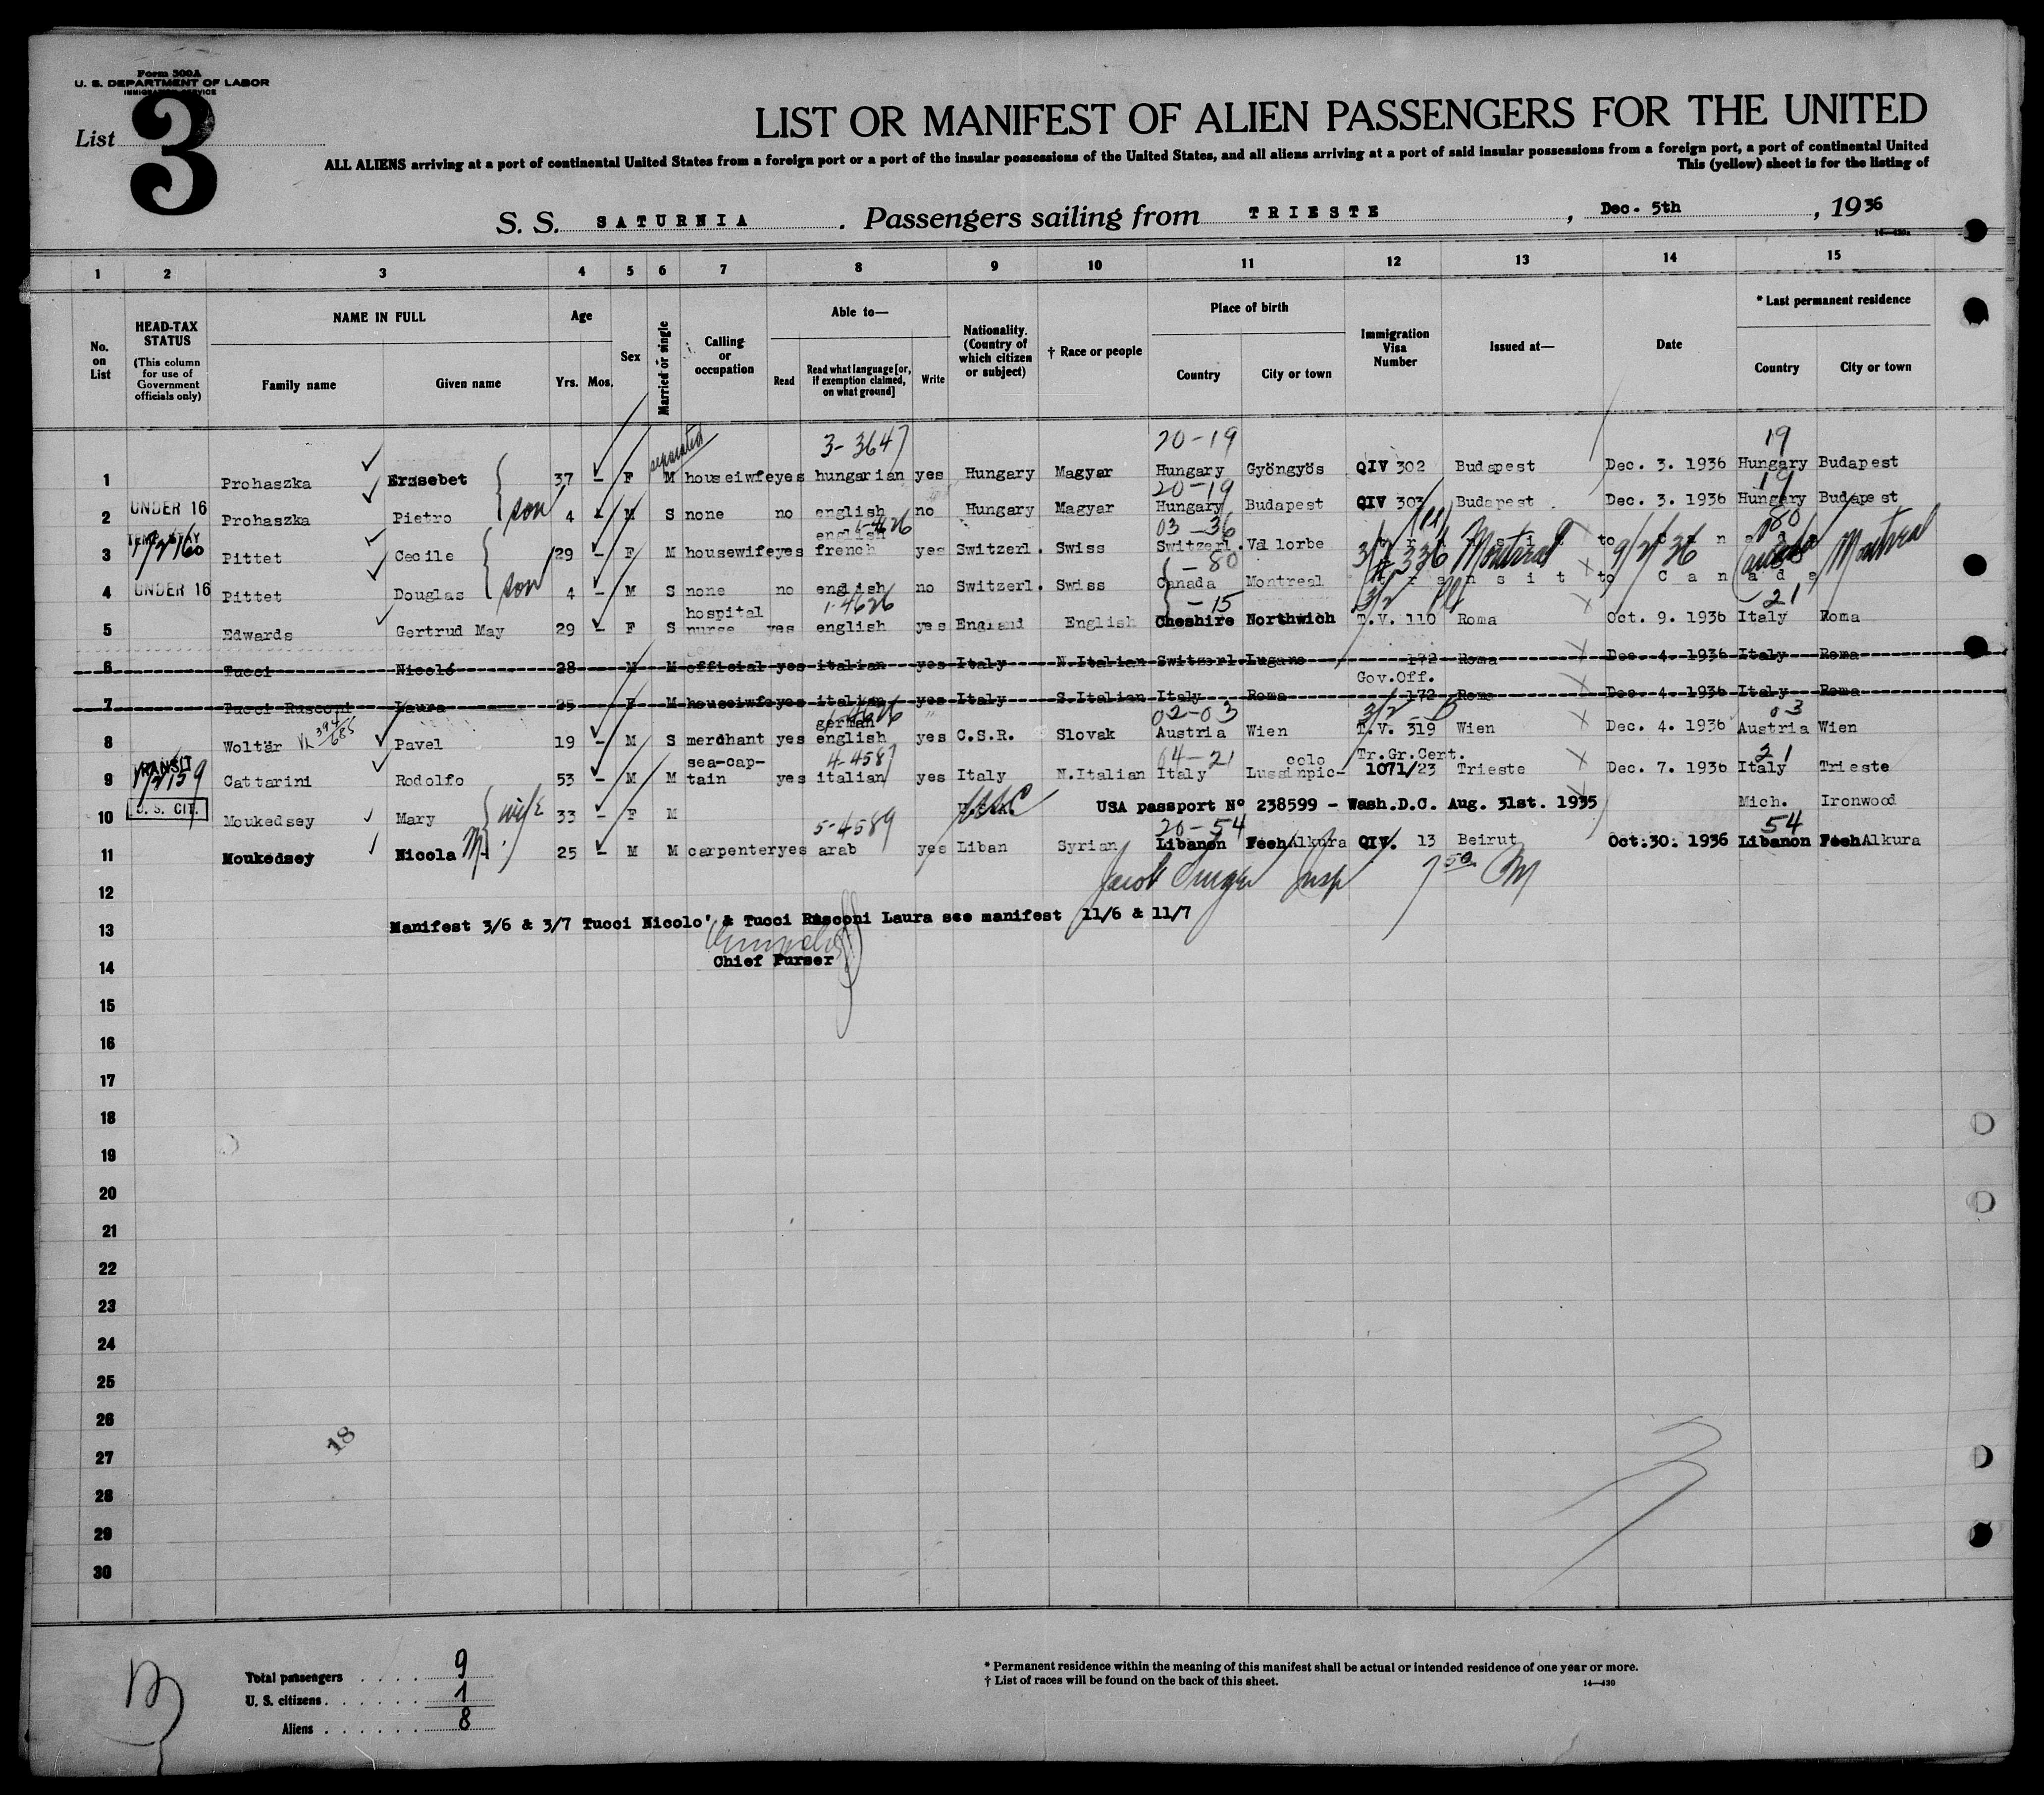 Form 500A
U. S. DEPARTMENT OF LABOR
IMMIGRATION SERVICE
List 3
LIST OR MANIFEST OF ALIEN PASSENGERS FOR THE UNITED
ALL ALIENS arriving at a port of continental United States from a foreign port or a port of the insular possessions of the United States, and all aliens arriving at a port of said insular possessions from a foreign port, a port of continental United
This (yellow) sheet is for the listing of
S. S. SATURNIA. Passengers sailing from TRIESTE, Dec. 5th, 1936
1 2 3 4 5 6 7 8 9 10 11 12 13 14 15
No. on List
HEAD-TAX STATUS (This column for use of Government officials only)
NAME IN FULL
Family name Given name
Age
Yrs. Mos.
Sex
Married or single
Calling or occupation
Able to—
Read Read what language [or, if exemption claimed, on what ground] Write
Nationality. (Country of which citizen or subject)
† Race or people
Place of birth
Country City or town
Immigration Visa Number
Issued at—
Date
* Last permanent residence
Country City or town
separated 3-3647 20-19 19
1 Prohaszka Erzsebet 37 - F M houseiwfe yes hungarian yes Hungary Magyar Hungary Gyöngyös QIV 302 Budapest Dec. 3. 1936 Hungary Budapest
20-19 19
2 UNDER 16 Prohaszka Pietro son 4 - M S none no english no Hungary Magyar Hungary Budapest QIV 303 Budapest Dec. 3. 1936 Hungary Budapest
TEMP. STAY english 03-36 80
3 Pittet Cecile 29 - F M housewife yes french yes Switzerl. Swiss Switzerl. Vallorbe transit to Canada 336 Montreal 9/2/36 Canada Montreal
-80
4 UNDER 16 Pittet Douglas son 4 - M S none no english no Switzerl. Swiss Canada Montreal transit to Canada
1-4626 -15 3/2 21
5 Edwards Gertrud May 29 - F S hospital nurse yes english yes England English Cheshire Northwich T.V. 110 Roma Oct. 9. 1936 Italy Roma
6 Tucci Nicoló 28 M M official yes italian yes Italy N.Italian Switzerl Lugano 172 Roma Dec. 4. 1936 Italy Roma
Gov.Off.
7 Tucci Rusconi Laura 25 F M houseiwfe yes italian yes Italy S.Italian Italy Roma 172 Roma Dec. 4. 1936 Italy Roma
german 02-03 3/2 03
8 Woltär Pavel 19 - M S merchant yes english yes C.S.R. Slovak Austria Wien T.V. 319 Wien Dec. 4. 1936 Austria Wien
TRANSIT sea-cap- 4-4587 64-21 colo Tr.Gr.Cert. 21
9 Cattarini Rodolfo 53 - M M tain yes italian yes Italy N.Italian Italy Lussinpic- 1071/23 Trieste Dec. 7. 1936 Italy Trieste
10 U. S. CIT. Moukedsey Mary wife 33 - F M USC USA passport Nº 238599 - Wash.D.C. Aug. 31st. 1935 Mich. Ironwood
5-4589 20-54 54
11 Moukedsey Nicola 25 - M M carpenter yes arab yes Liban Syrian Libanon Feeh Alkura QIV. 13 Beirut Oct.30. 1936 Libanon Feeh Alkura
12
13 Manifest 3/6 & 3/7 Tucci Nicolo' & Tucci Rusconi Laura see manifest 11/6 & 11/7
14 Chief Purser
15
16
17
18
19
20
21
22
23
24
25
26
27
28
29
30
18
Total passengers 9
U. S. citizens 1
Aliens 8
* Permanent residence within the meaning of this manifest shall be actual or intended residence of one year or more.
† List of races will be found on the back of this sheet.
14—430